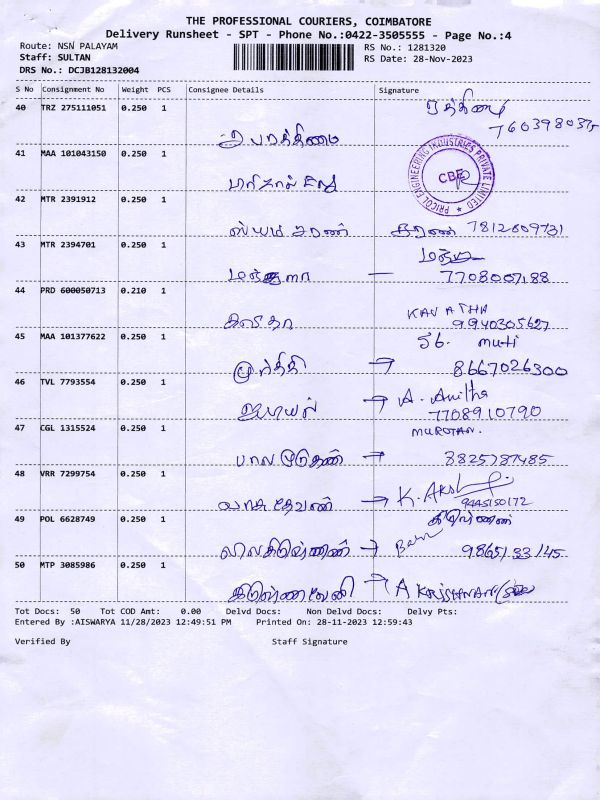 THE PROFESSIONAL COURIERS, COIMBATORE
Delivery Runsheet - SPT - Phone No.:0422-3505555 - Page No.:4
Route: NSN PALAYAM
RS No.: 1281320
Staff: SULTAN
RS Date: 28-Nov-2023
DRS No.: DCJB128132004
S No Consignment No Weight PCS Consignee Details Signature
40 TRZ 275111051 0.250 1
7603980375
41 MAA 101043150 0.250 1
PRICOL ENGINEERING INDUSTRIES PRIVATE LIMITED
CBE
42 MTR 2391912 0.250 1
சரண் 7812609731
43 MTR 2394701 0.250 1
மஞ்சுளா 7708007188
44 PRD 600050713 0.210 1
KAVATHA
கவிதா 9940305627
45 MAA 101377622 0.250 1
muti
மூர்த்தி → 8667026300
46 TVL 7793554 0.250 1
→ A. Anitha
7708910790
47 CGL 1315524 0.250 1
MUROTAN.
பாலமுருகன் → 8825787485
48 VRR 7299754 0.250 1
வாசுதேவன் → K. AKSh
9445150172
49 POL 6628749 0.250 1
→ 9865133145
50 MTP 3085986 0.250 1
கிருஷ்ணவேணி → A KRISHNAN
Tot Docs: 50 Tot COD Amt: 0.00 Delvd Docs: Non Delvd Docs: Delvy Pts:
Entered By :AISWARYA 11/28/2023 12:49:51 PM Printed On: 28-11-2023 12:59:43
Verified By Staff Signature